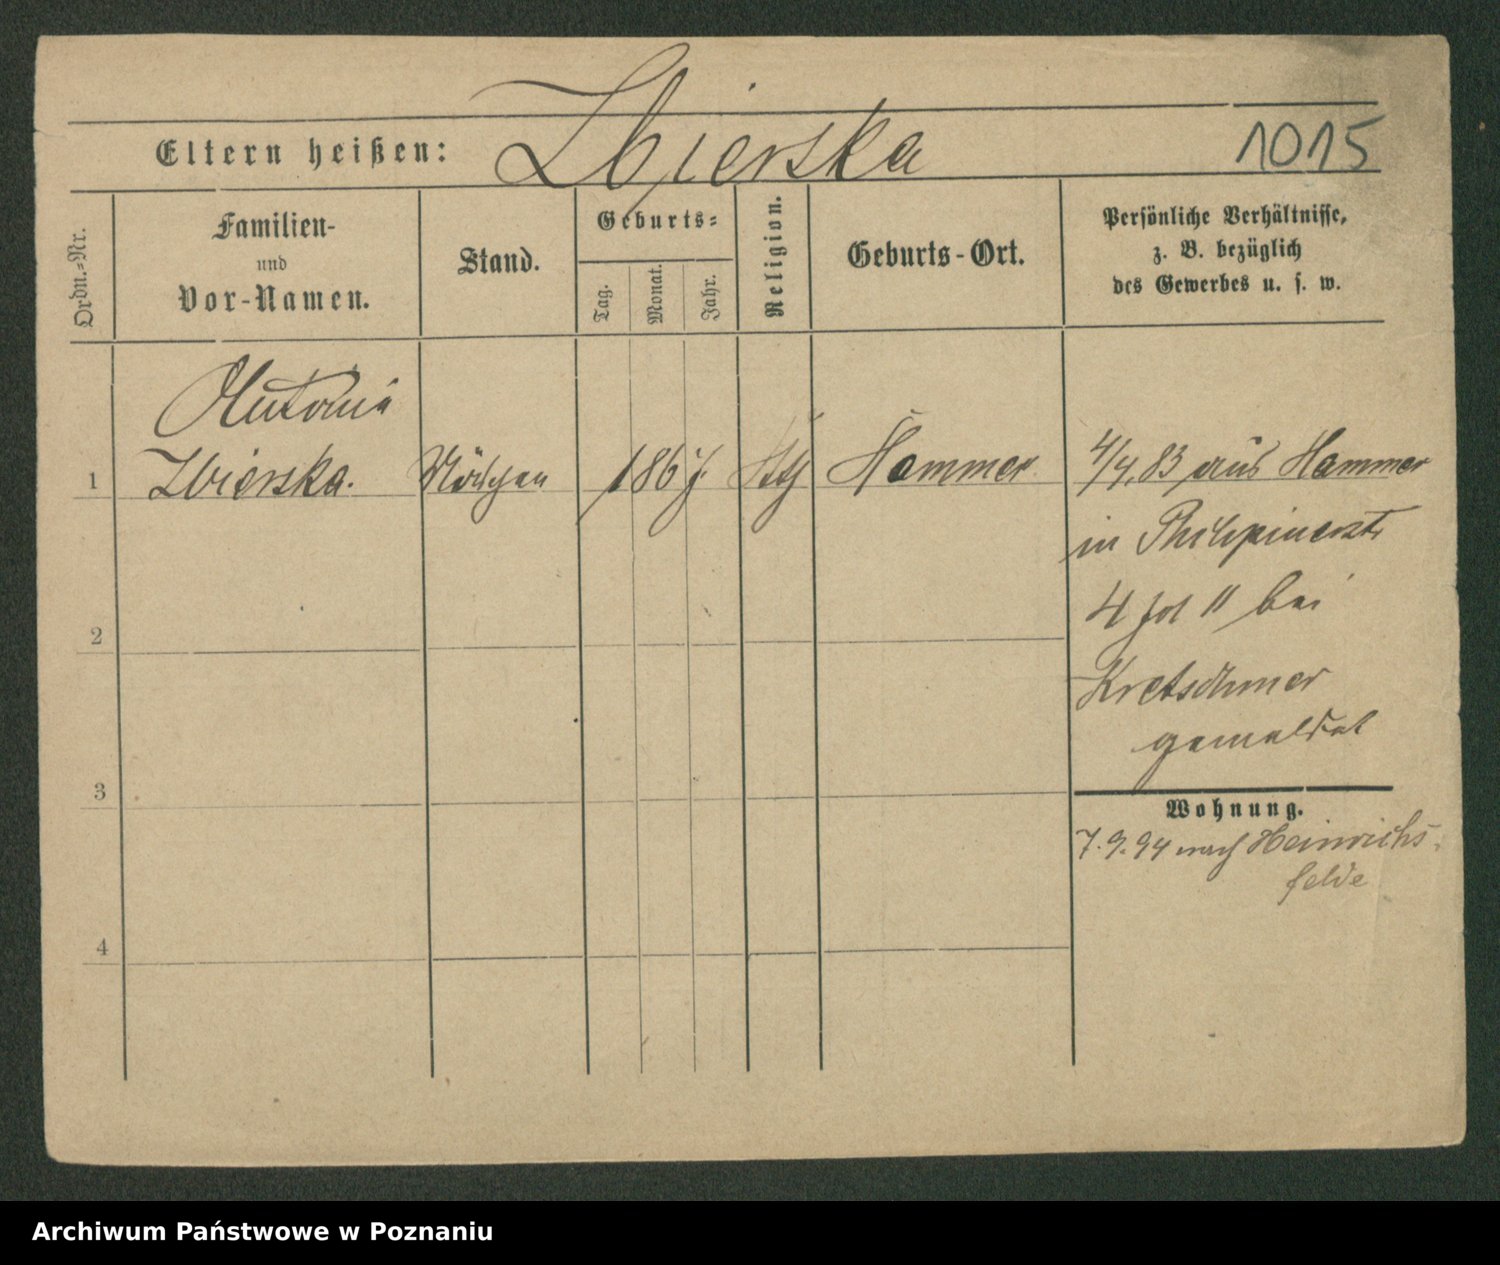 Eltern heißen: Zbierska 1015
Ordn.=Nr.
Familien-
und
Vor-Namen.
Stand.
Geburts=
Tag.
Monat.
Jahr.
Religion.
Geburts-Ort.
Persönliche Verhältnisse,
z. B. bezüglich
des Gewerbes u. s. w.
Antonie
1 Zbierska. Mädchen 1867 Kth Hammer 4/4.83 aus Hammer
in
2 4 bei
Kretschmer
gemeldet
3
Wohnung.
7.9.94 nach Heinrichs-
felde
4
Archiwum Państwowe w Poznaniu